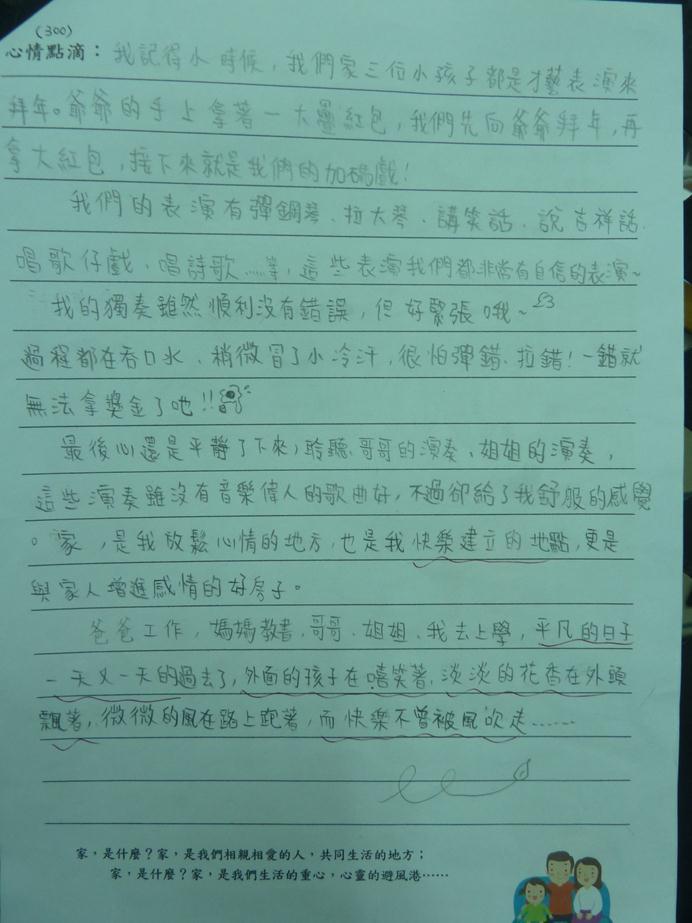 (300)
心情點滴：我記得小時候，我們家三位小孩子都是才藝表演來
拜年。爺爺的手上拿著一大疊紅包，我們先向爺爺拜年，再
拿大紅包，接下來就是我們的加碼戲！
我們的表演有彈鋼琴、拉大琴、講笑話、說吉祥話、
唱歌仔戲、唱詩歌……等，這些表演我們都非常有自信的表演~
我的獨奏雖然順利沒有錯誤，但好緊張哦~
過程都在吞口水、稍微冒了小冷汗，很怕彈錯、拉錯！一錯就
無法拿獎金了吔!!
最後心還是平靜了下來，聆聽哥哥的演奏、姐姐的演奏，
這些演奏雖沒有音樂偉人的歌曲好，不過卻給了我舒服的感覺
。家，是我放鬆心情的地方，也是我快樂建立的地點，更是
與家人增進感情的好房子。
爸爸工作，媽媽教書，哥哥、姐姐、我去上學，平凡的日子
一天又一天的過去了，外面的孩子在嘻笑著，淡淡的花香在外頭
飄著，微微的風在路上跑著，而快樂不曾被風吹走……
家，是什麼？家，是我們相親相愛的人，共同生活的地方；
家，是什麼？家，是我們生活的重心，心靈的避風港……